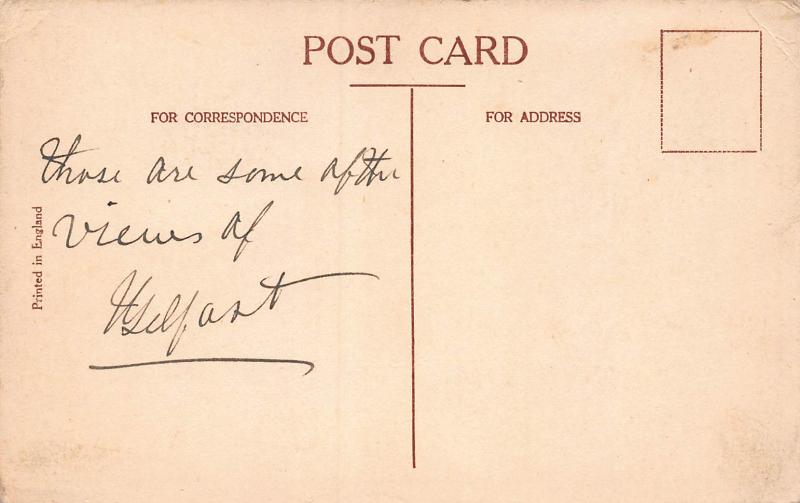 POST CARD
FOR CORRESPONDENCE
FOR ADDRESS
those are some of the
views of
Belfast
Printed in England